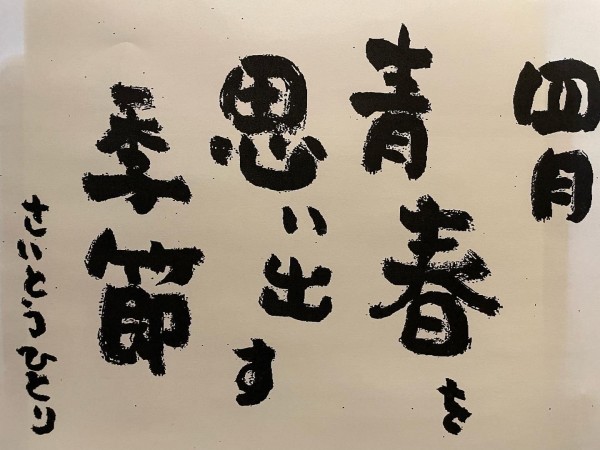 四月
青春を
思い出す
季節
さいとうひとり